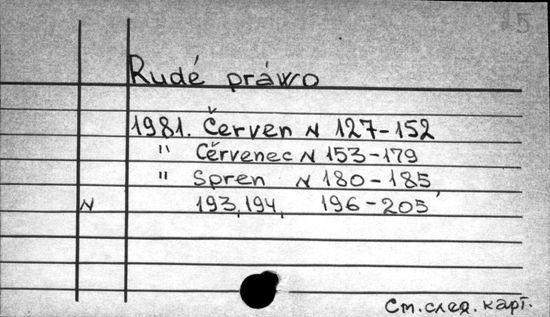 15
Rudé práwo
1981. Červen N 127-152
" Cěrvenec N 153-179
" Spren N 180-185,
N 193, 194, 196-205
См. след. карт.